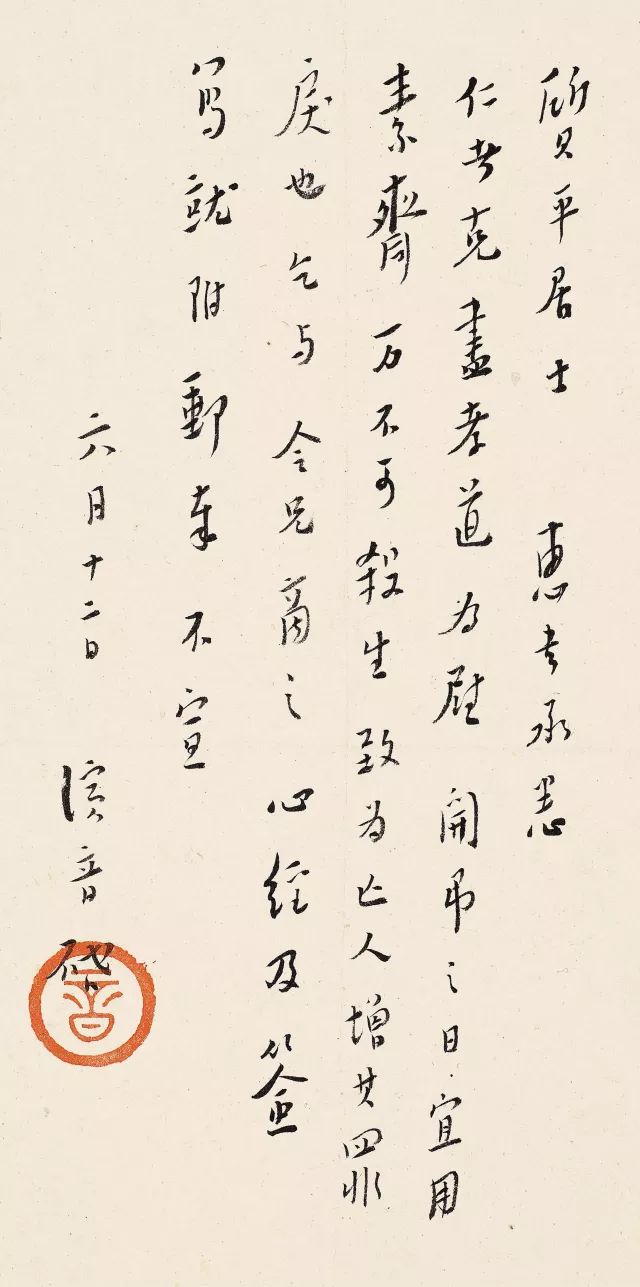 質平居士 惠書承悉
仁者克盡孝道為慰開弔之日宜用
素齋万不可殺生致為亡人增其罪
戾也乞与令兄商之心經及簽
寫就附郵奉不宣
六月十二日 演音啓